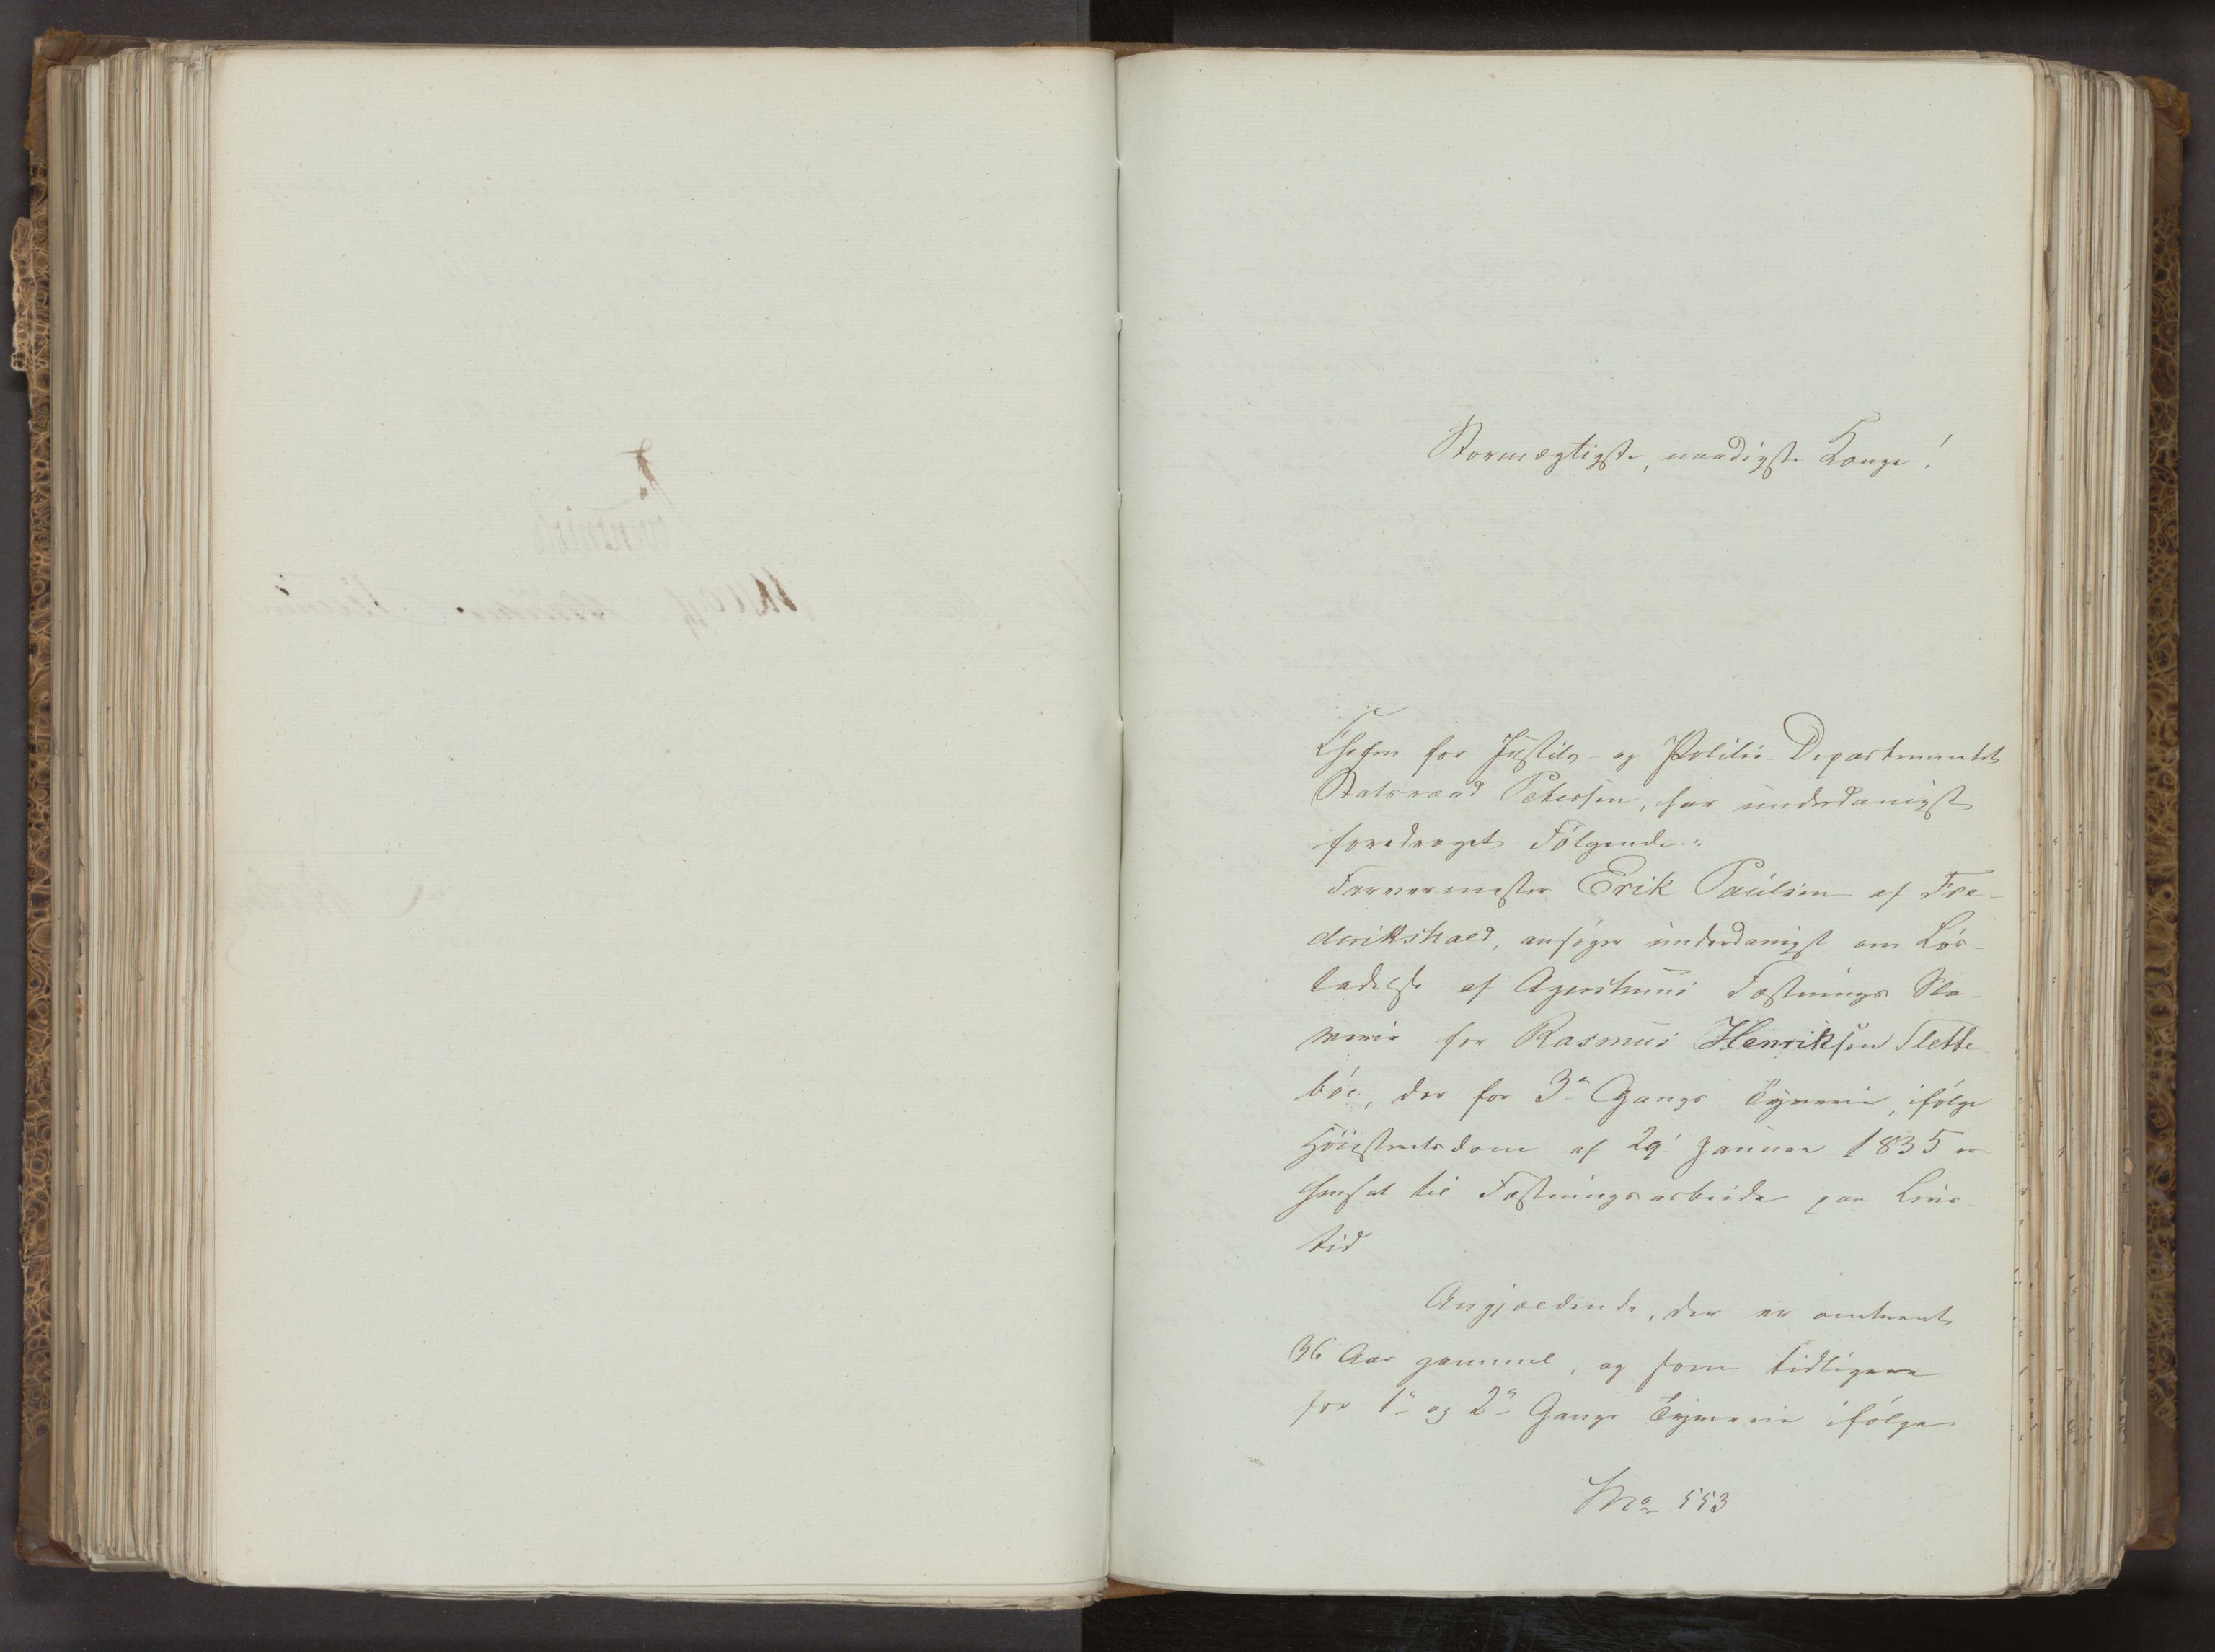 Stormægtigste, naadigste Konge!
Chefen for Justits- og Politie-Departementet
Statsraad Petersen, har underdanigst
foredraget Følgende:
Farvermester Erik Paulsen af Fre-
derikshald, ansøger underdanigst om Lös-
ladelse af Agershuus Fæstnings Sla-
verie for Rasmus Henriksen Slette-
böe, der for 3die Gangs Tyverie, ifølge
Höiesteretsdom af 29 Januar 1835 er
hensat til Fæstningsarbeide paa Livs-
tid
Angjældende, der er omtrent
36 Aar gammel, og som tidligere
for 1ste og 2den Gangs Tyverie ifølge
No 553